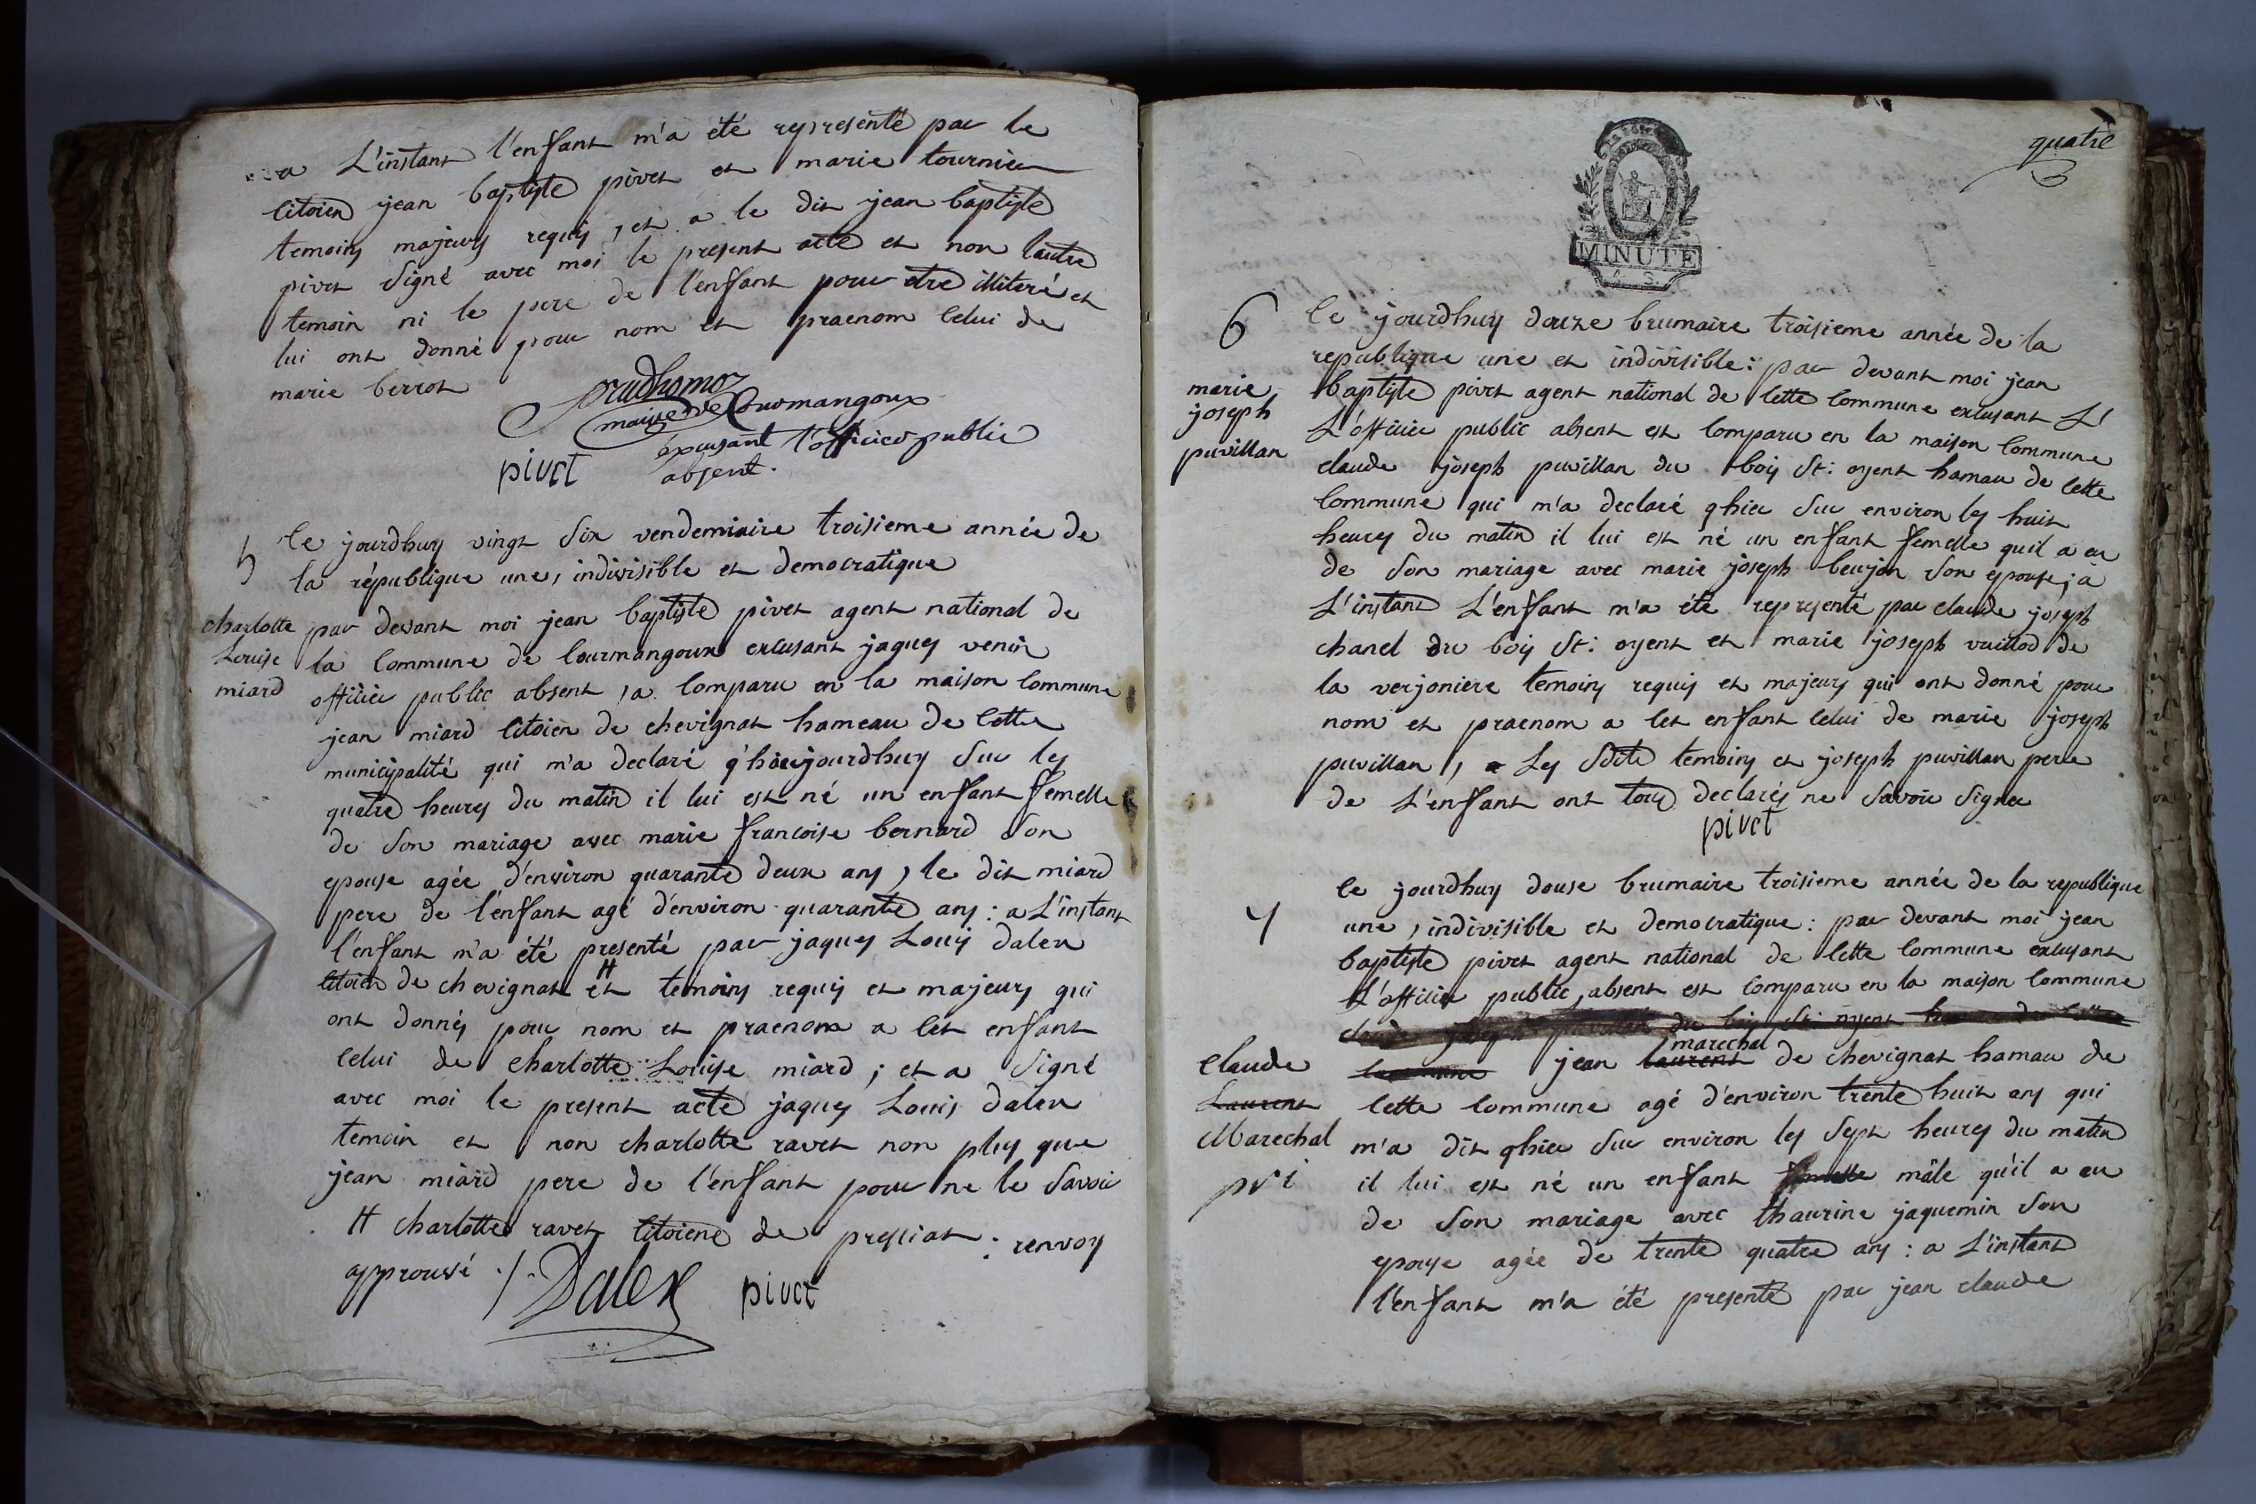 a L'instant l'enfant m'a été representé par le
citoien jean baptiste pivet et marie tournier
temoins majeurs requis, et a le dit jean baptiste
pivet signé avec moi le present acte et non lautre
temoin ni le pere de l'enfant pour etre illiteré et
lui ont donné pour nom et praenom celui de
marie berrot
prudhomoz
maire de Courmangoux
excusant l'officier public
pivet absent.
5
le jourdhuy vingt six vendemiaire troisieme année de
la république une, indivisible et democratique
charlotte
Louise
miard
par devant moi jean baptiste pivet agent national de
la commune de Courmangoux excusant jaques venin
officier public absent, a comparu en la maison commune
jean miard citoien de chevignat hameau de cette
municipalité qui m'a declaré q'hierjourdhuy sur les
quatre heures du matin il lui est né un enfant femelle
de son mariage avec marie francoise bernard son
epouse agée d'environ quarante deux ans, le dit miard
pere de l'enfant agé d'environ quarante ans : a L'instant
l'enfant m'a été presenté par jaques Louis dalex
citoien de chevignat et # temoins requis et majeurs qui
ont donnés pour nom et praenom a cet enfant
celui de charlotte Louise miard ; et a signé
avec moi le present acte jaques Louis dalex
temoin et non charlotte ravet non plus que
jean miard pere de l'enfant pour ne le savoir
# charlotte ravet citoiene de pressiat : renvoy
approuvé ./.
Dalex pivet
quatre
MINUTE
6
marie
joseph
puvillan
le jourdhuy douze brumaire troisieme année de la
republique une et indivisible : par devant moi jean
baptiste pivet agent national de cette commune excusant L'
L'officier public absent est comparu en la maison commune
claude joseph puvillan du bois St: oyent hamau de cette
commune qui m'a declaré qhier sur environ les huit
heures du matin il lui est né un enfant femelle quil a eu
de son mariage avec marie joseph beujon son epouse, à
L'instant L'enfant m'a été representé par claude joseph
chanel du bois St: oyent et marie joseph vuillod de
la verjoniere temoins requis et majeurs qui ont donné pour
nom et praenom a cet enfant celui de marie joseph
puvillan, Les Sdits temoins et joseph puvillan pere
de L'enfant ont tous declarés ne savoir signer
pivet
7
le jourdhuy douse brumaire troisieme année de la republique
une, indivisible et democratique : par devant moi jean
baptiste pivet agent national de cette commune excusant
L'officier public, absent est comparu en la maison commune
claude joseph puvillan du bois St: oyent hamau de cette
Claude
Laurent
Marechal
commune jean laurent marechal de chevignat hamau de
cette commune agé d'environ trente huit ans qui
m'a dit qhier sur environ les sept heures du matin
il lui est né un enfant femelle mâle qu'il a eu
de son mariage avec thaurine jaquemin son
epouse agée de trente quatre ans : a L'instant
l'enfant m'a été presenté par jean claude